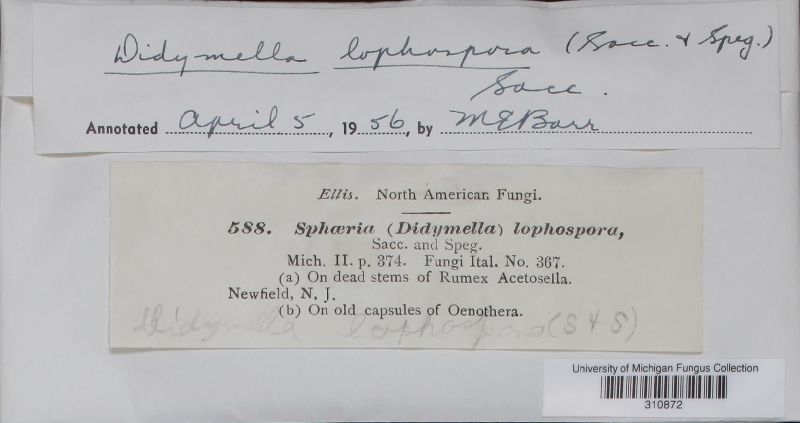 Didymella lophospora (Sacc. & Speg.)
Sacc.
Annotated April 5, 1956, by M E Barr
Ellis. North American Fungi.
588. Sphæria (Didymella) lophospora,
Sacc. and Speg.
Mich. II. p. 374. Fungi Ital. No. 367.
(a) On dead stems of Rumex Acetosella.
Newfield, N. J.
(b) On old capsules of Oenothera.
Didymella lophospora (S & S)
University of Michigan Fungus Collection
310872